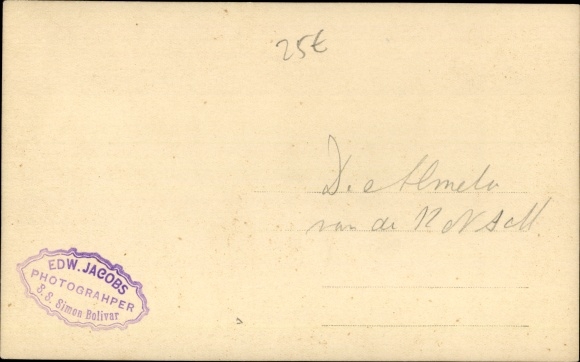 25€
D. Almela
van de KNSM
EDW. JACOBS
PHOTOGRAHPER
S.S. Simon Bolivar